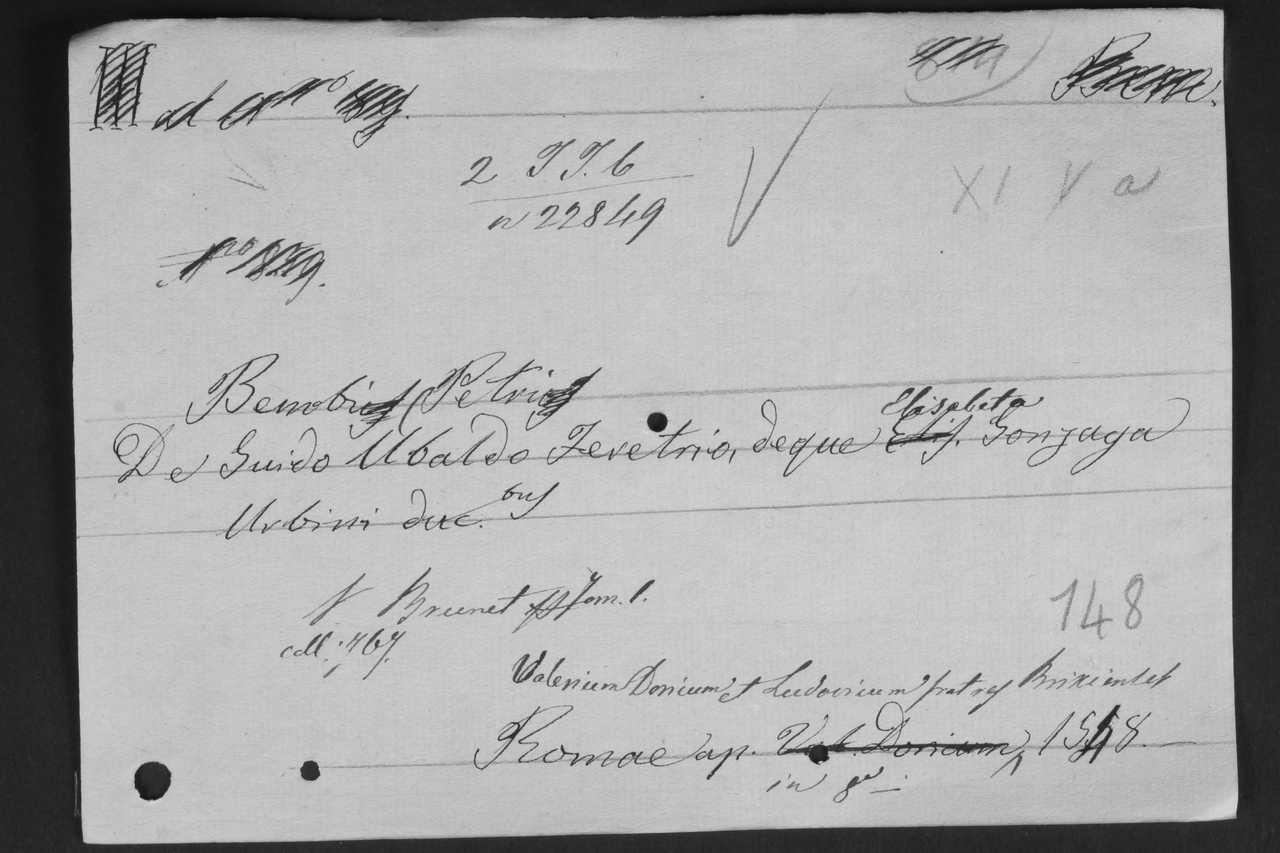 ad
2 J J. b
n 22849
XI V a
Bembi Petri
De Guido Ubaldo Feretrio, deque Elisabeta Gonzaga
Urbini duc.bus
V Brunet Tom. 1.
coll: 767.
148
Valerium Doricum et Ludovicum fratres Brixienses
Romae ap. Val. Doricum, 1548.
in 8º